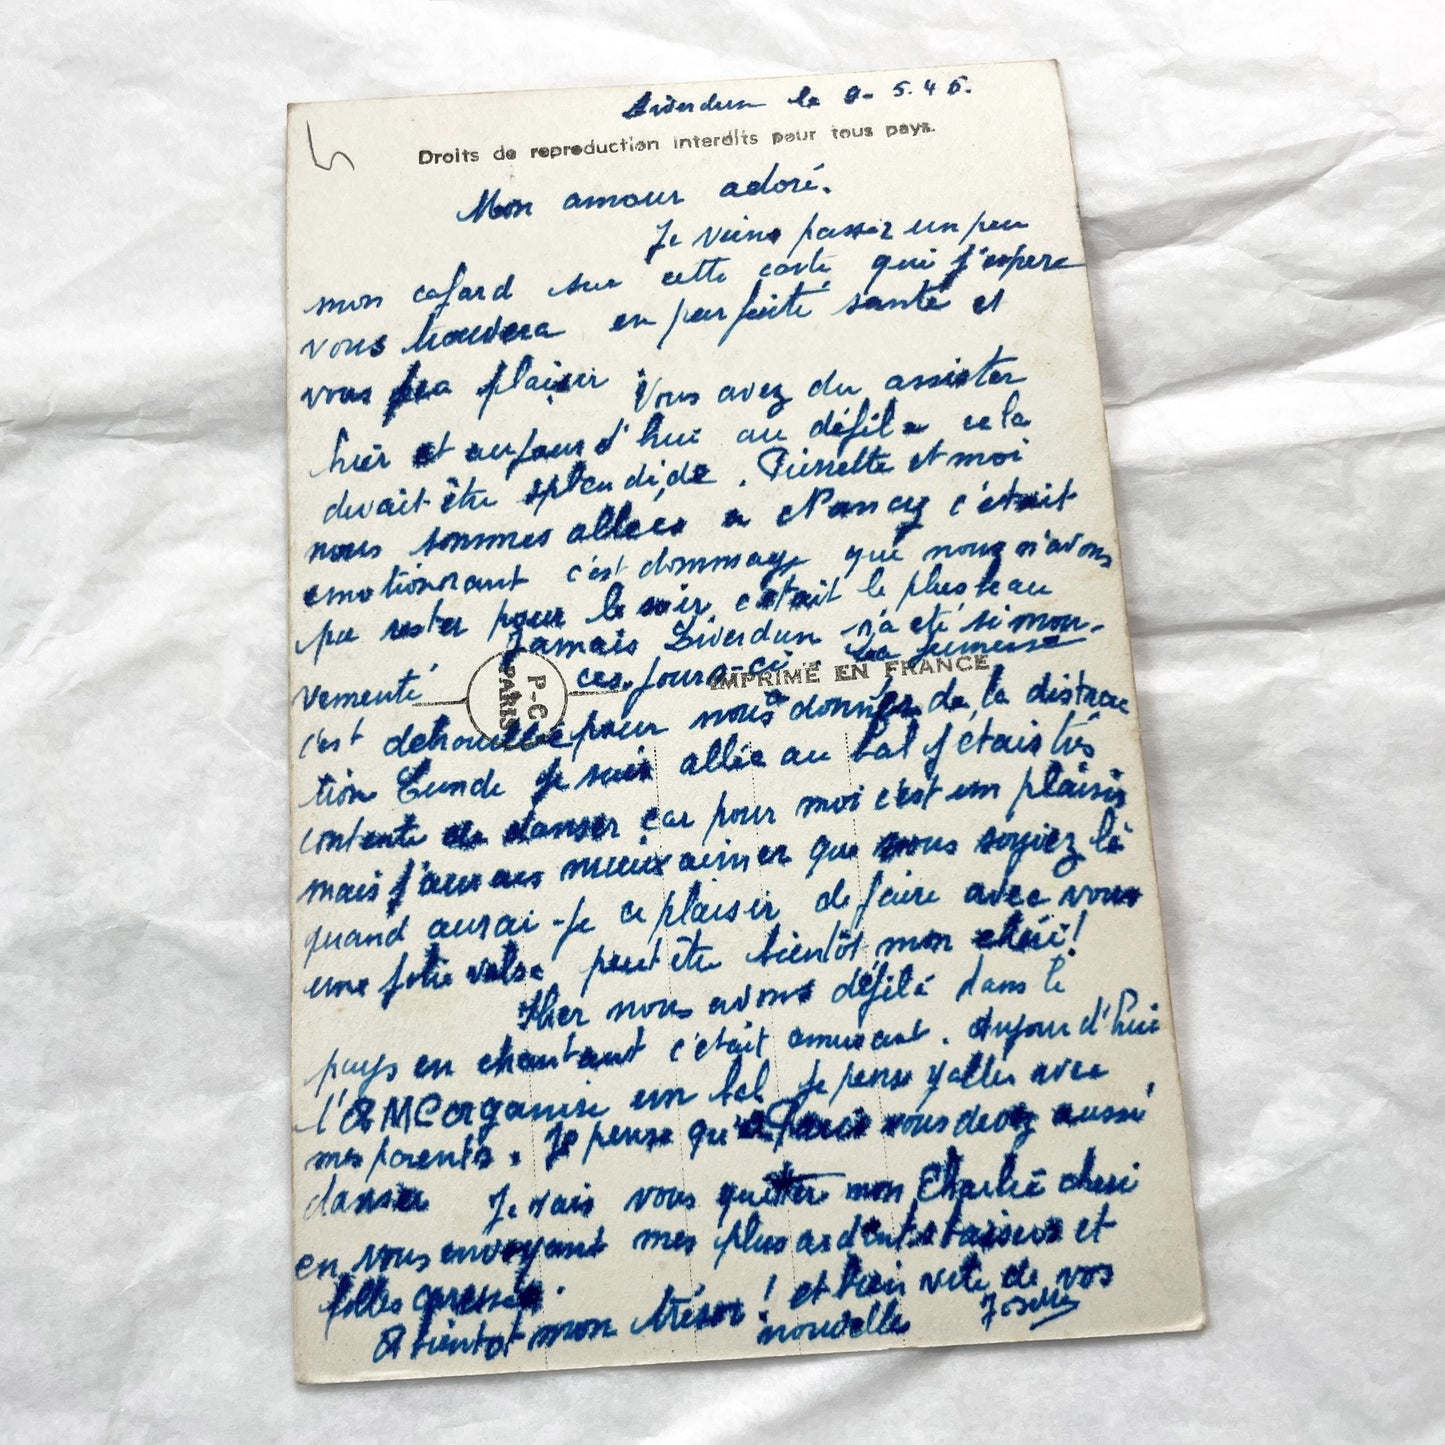 Liverdun le 9-5.45.
Droits de reproduction interdits pour tous pays.
Mon amour adoré.
Je viens passer un peu
mon cafard sur cette carte qui j'espere
vous trouvera en parfaite santé et
vous fera plaisir Vous avez du assister
hier et aujourd'hui au défile cela
devait être splendide. Pierrette et moi
nous sommes allees a Nancy c'était
emotionnant c'est dommage que nous n'avons
pu rester pour le soir, c'était le plus beau
Jamais Liverdun n'a eté si mou-
vementé ces jours-ci. La jeunesse
P-C PARIS
IMPRIMÉ EN FRANCE
c'est detrouillé pour nous donner de la distrac
tion Lundi je suis allée au bal j'étais très
contente de danser car pour moi c'est un plaisir
mais j'aurais mieux aimer que vous soyiez là
quand aurai-je ce plaisir de faire avec vous
une folie valse peut être bientôt mon chéri!
Hier nous avons défilé dans le
pays en chantant c'était amusant. Aujourd'hui
l'AMC organise un bal je pense y aller avec
mes parents. Je pense qu'a Paris vous devez aussi
danser Je vais vous quitter mon Charlie cheri
en vous envoyant mes plus ardents baisers et
folles caresses.
A bientot mon trésor! et bien vite de vos
nouvelles Josette